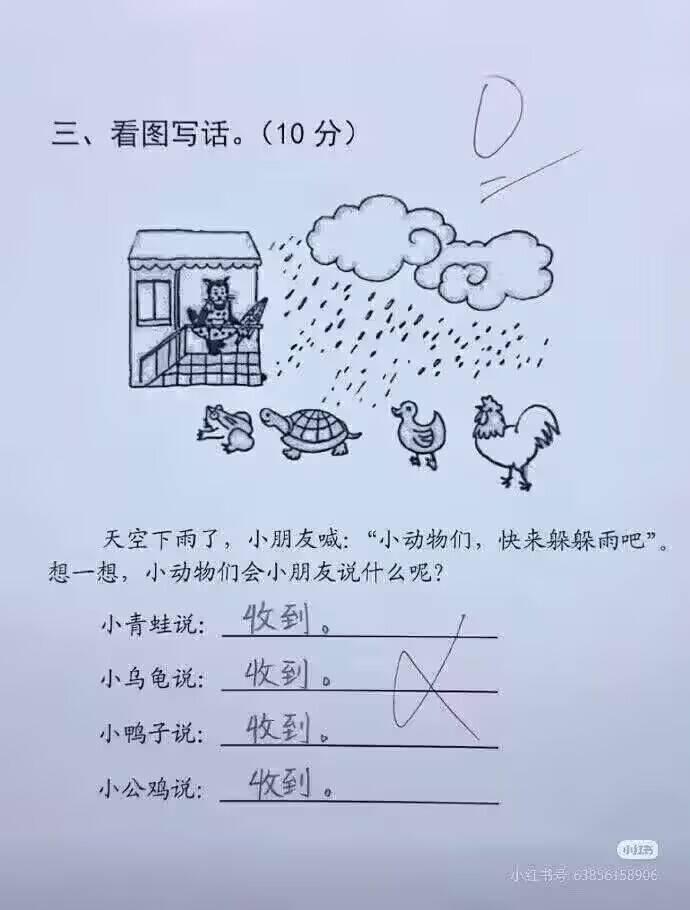 0
三、看图写话。（10 分）
天空下雨了，小朋友喊：“小动物们，快来躲躲雨吧”。
想一想，小动物们会小朋友说什么呢？
小青蛙说：收到。
小乌龟说：收到。
小鸭子说：收到。
小公鸡说：收到。
小红书
小红书号:63856158906